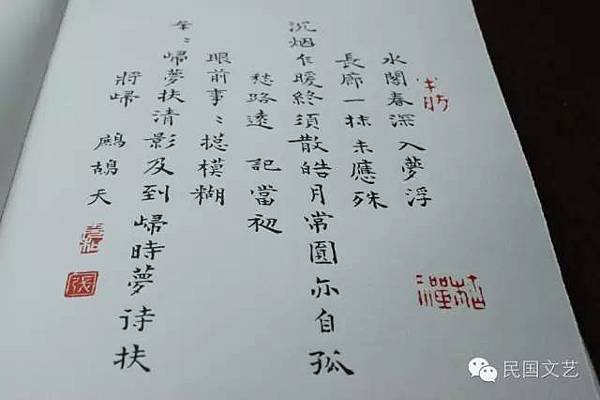 水閣春深入夢浮
長廊一抹未應殊
沉烟乍暖終須散皓月常圓亦自孤
愁路遠 記當初
眼前事〻摠模糊
年〻歸夢扶清影及到歸時夢待扶
將歸 鷓鴣天
充和
張
民国文艺